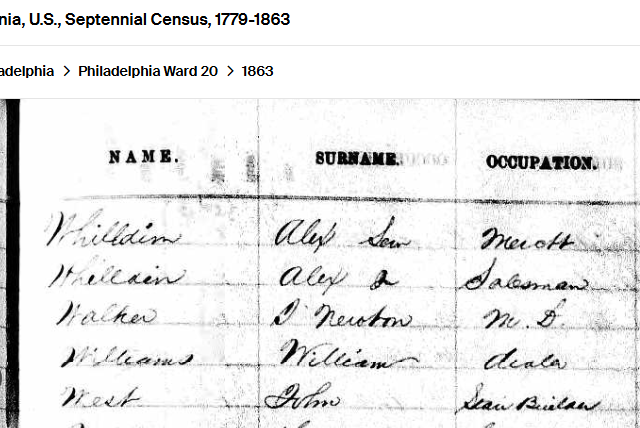 nia, U.S., Septennial Census, 1779-1863
adelphia > Philadelphia Ward 20 > 1863
NAME. SURNAME. OCCUPATION.
Whilldin Alex Sen Mercht
Whilldin Alex Jr Salesman
Walker J Newton M. D.
Williams William dealer
West John Stair Builder